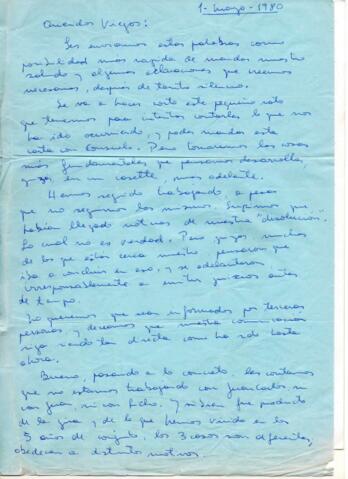 1-mayo-1980
Queridos Viejos:
Les enviamos estas palabras como
posibilidad mas rapida de mandar nuestro
saludo y algunas aclaraciones que creemos
necesarias, después de tanto silencio.
Se va a hacer corto este pequeño rato
que tenemos para intentar contarles lo que nos
ha ido ocurriendo, y poder mandar esta
carta con Consuelo. Pero tomaremos las cosas
más fundamentales que pensamos desarrollar
quizás, en un cassette, mas adelante.
Hemos seguido trabajando, a pesar
que no seguimos los mismos. Supimos que
habían llegado noticias de nuestra "disolución".
Lo cual no es verdad. Pero quizás muchos
de los que están cerca nuestro pensaron que
iba a concluir en eso, y se adelantaron
irresponsablemente a emitir juicios antes
de tiempo.
No queremos que sean informados por terceras
personas, y deseamos que nuestra comunicación
siga siendo tan directa como ha sido hasta
ahora.
Bueno, pasando a lo concreto, les contamos
que no estamos trabajando con Juan Carlos, ni
con, ni con Nacho. Y si bien fue producto
de la gira, y de lo que hemos vivido en los
5 años de conjunto, los 3 casos son diferentes,
obedecen a distintos motivos.